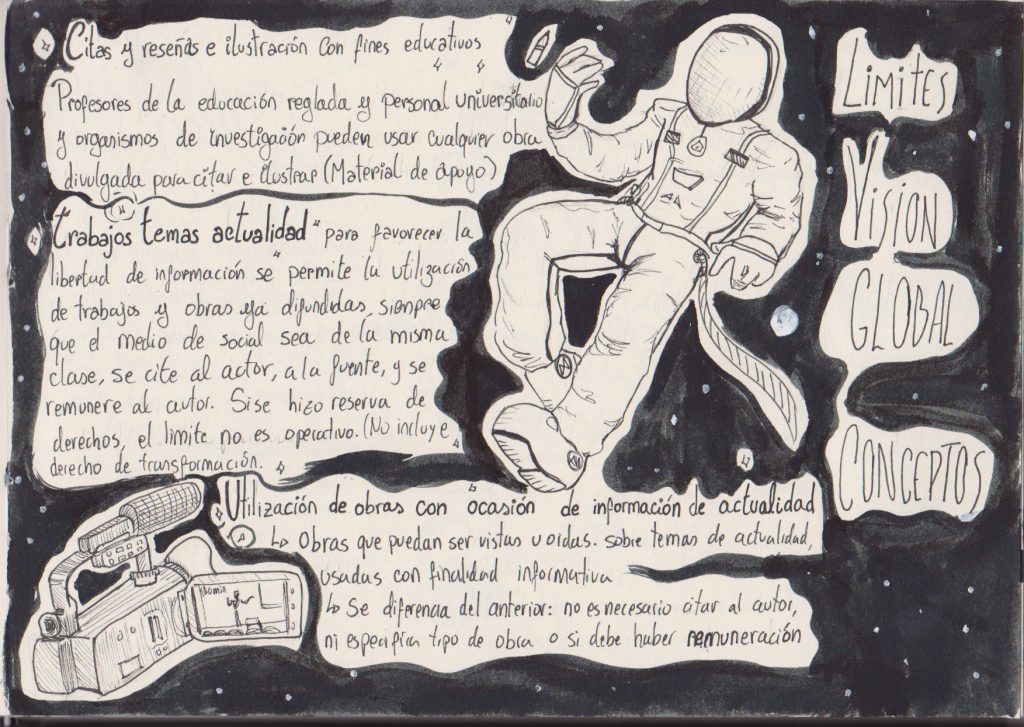 Citas y reseñas e ilustración con fines educativos
Profesores de la educación reglada y personal universitario
y organismos de investigación pueden usar cualquier obra
divulgada para citar e ilustrar (Material de apoyo)
Trabajos temas actualidad " para favorecer la
libertad de información se " permite la utilización
de trabajos y obras ya difundidas, siempre
que el medio de social sea de la misma
clase, se cite al actor, a la fuente, y se
remunere al autor. Si se hizo reserva de
derechos, el limite no es operativo. (No incluye
derecho de transformación.
Utilización de obras con "ocasión de información de actualidad
↳ Obras que puedan ser vistas u oidas. sobre temas de actualidad,
usadas con finalidad informativa
↳ Se diferencia del anterior: no es necesario citar al autor,
ni especifica tipo de obra o si debe haber remuneración
LIMITES
VISION
GLOBAL
CONCEPTOS